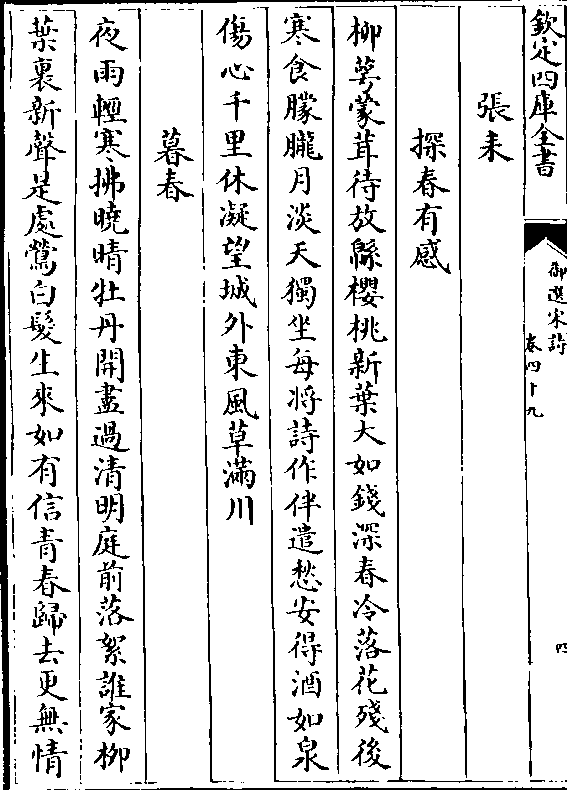 欽定四庫全書
御選宋詩
卷四十九
四
張耒
探春有感
柳蕚蒙茸待放緜櫻桃新葉大如錢深春冷落花殘後
寒食朦朧月淡天獨坐每將詩作伴遣愁安得酒如泉
傷心千里休凝望城外東風草滿川
暮春
夜雨輕寒拂曉晴牡丹開盡過清明庭前落絮誰家栁
葉裏新聲是處鶯白髮生來如有信青春歸去更無情